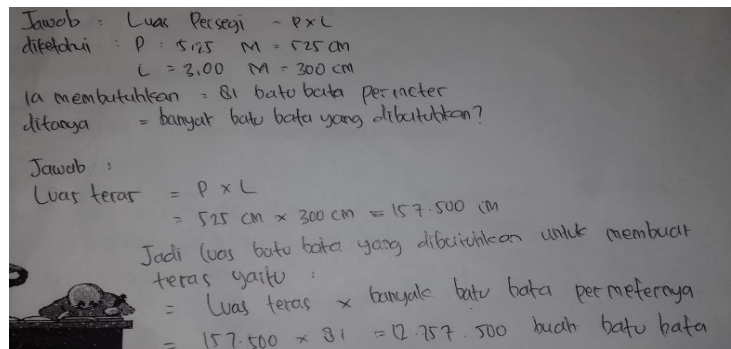 Jawab : Luas Persegi = P x L
diketahui : P : 5,25 M = 525 cm
L = 3,00 M = 300 cm
Ia membutuhkan = 81 batu bata permeter
ditanya = banyak batu bata yang dibutuhkan?
Jawab :
Luas teras = P x L
= 525 cm x 300 cm = 157.500 cm
Jadi luas batu bata yang dibutuhkan untuk membuat
teras yaitu :
= Luas teras x banyak batu bata permeternya
= 157.500 x 81 = 12.757.500 buah batu bata